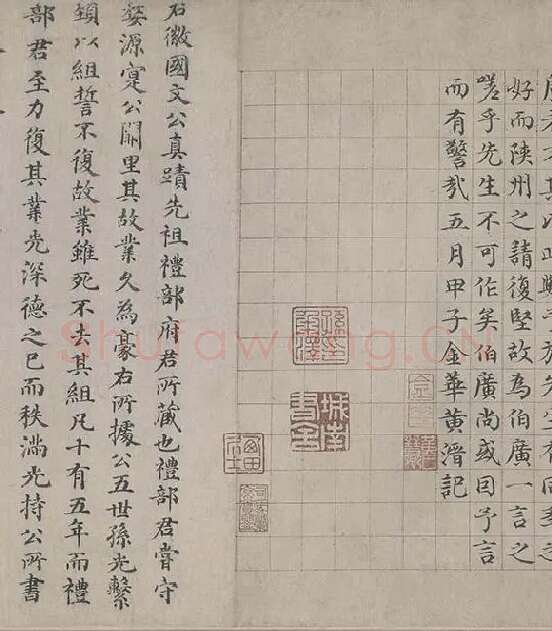 好而陝州之請復堅故為伯廣一言之
嗟乎先生不可作矣伯廣尚或因予言
而有警哉五月甲子金華黃溍記
城南書舍
右徽國文公真蹟先祖禮部府君所藏也禮部君嘗守
婺源寔公闕里其故業久為豪右所據公五世孫光繫
頸以組誓不復故業雖死不去其組凡十有五年而禮
部君至力復其業光深德之已而秩滿光持公所書
Shufawang.CN